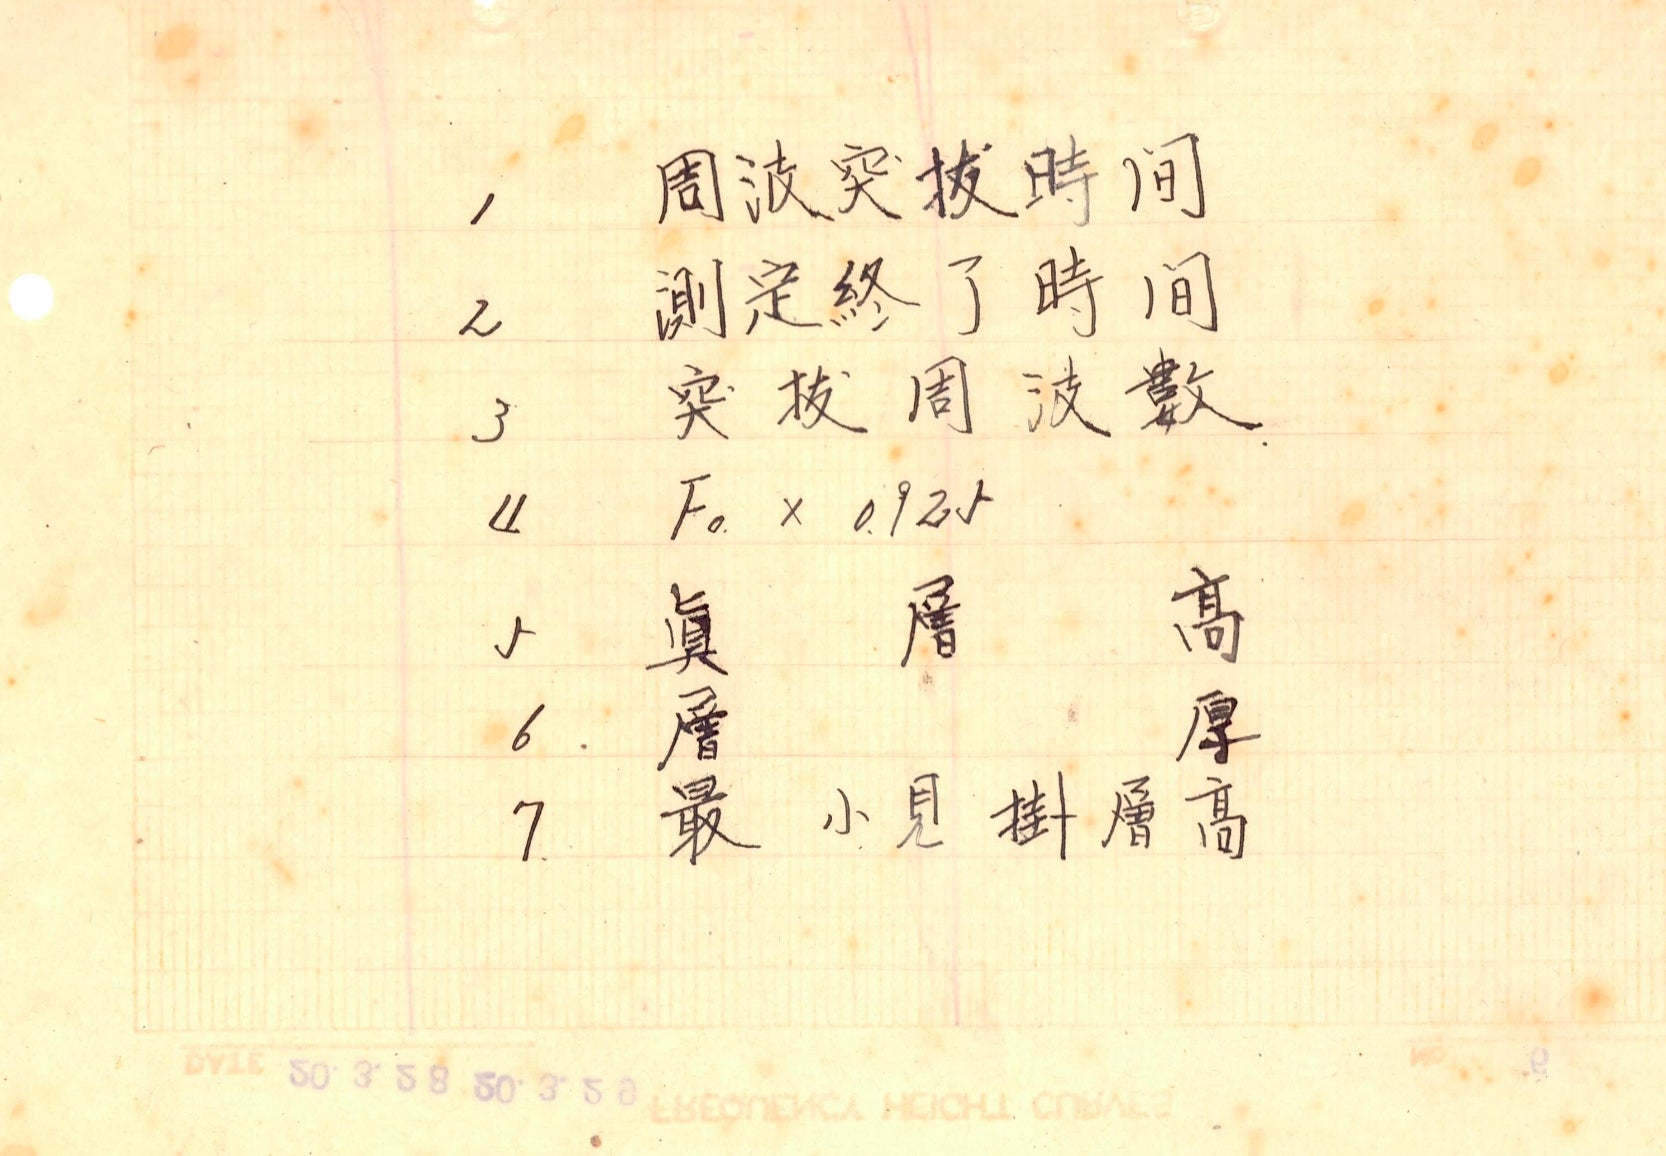 1 周波突拔時间
2 測定終了時间
3 突拔周波數
4 Fo. × 0.925
5 眞層高
6. 層厚
7. 最小見掛層高
DATE 20.3.28 20.3.29 FREQUENCY HEIGHT CURVES No. 6